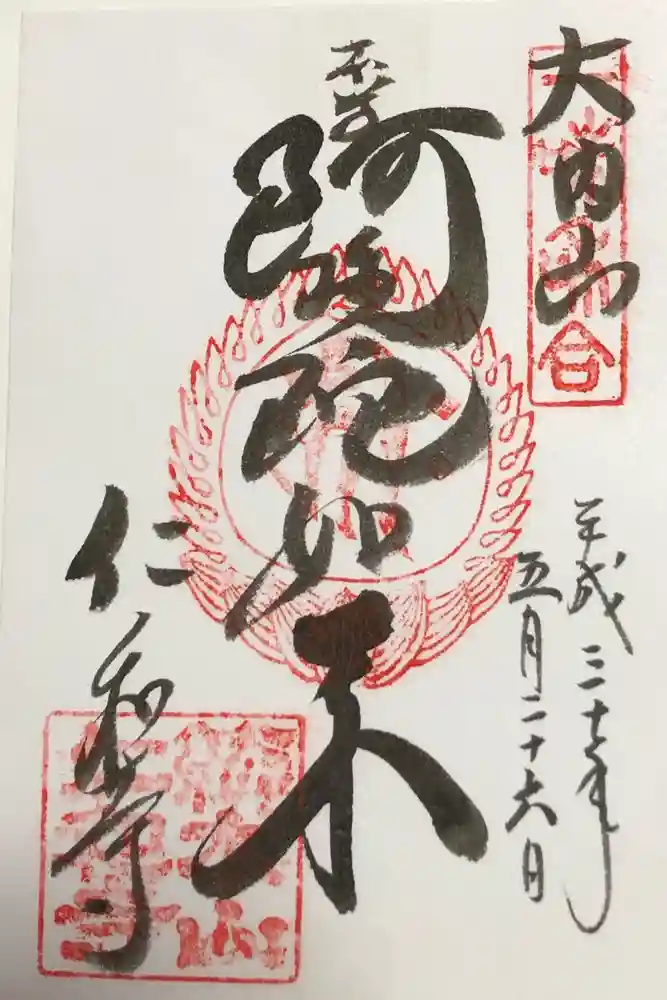 大内山
平成三十年
五月二十六日
奉拝
阿弥陀如来
仁和寺